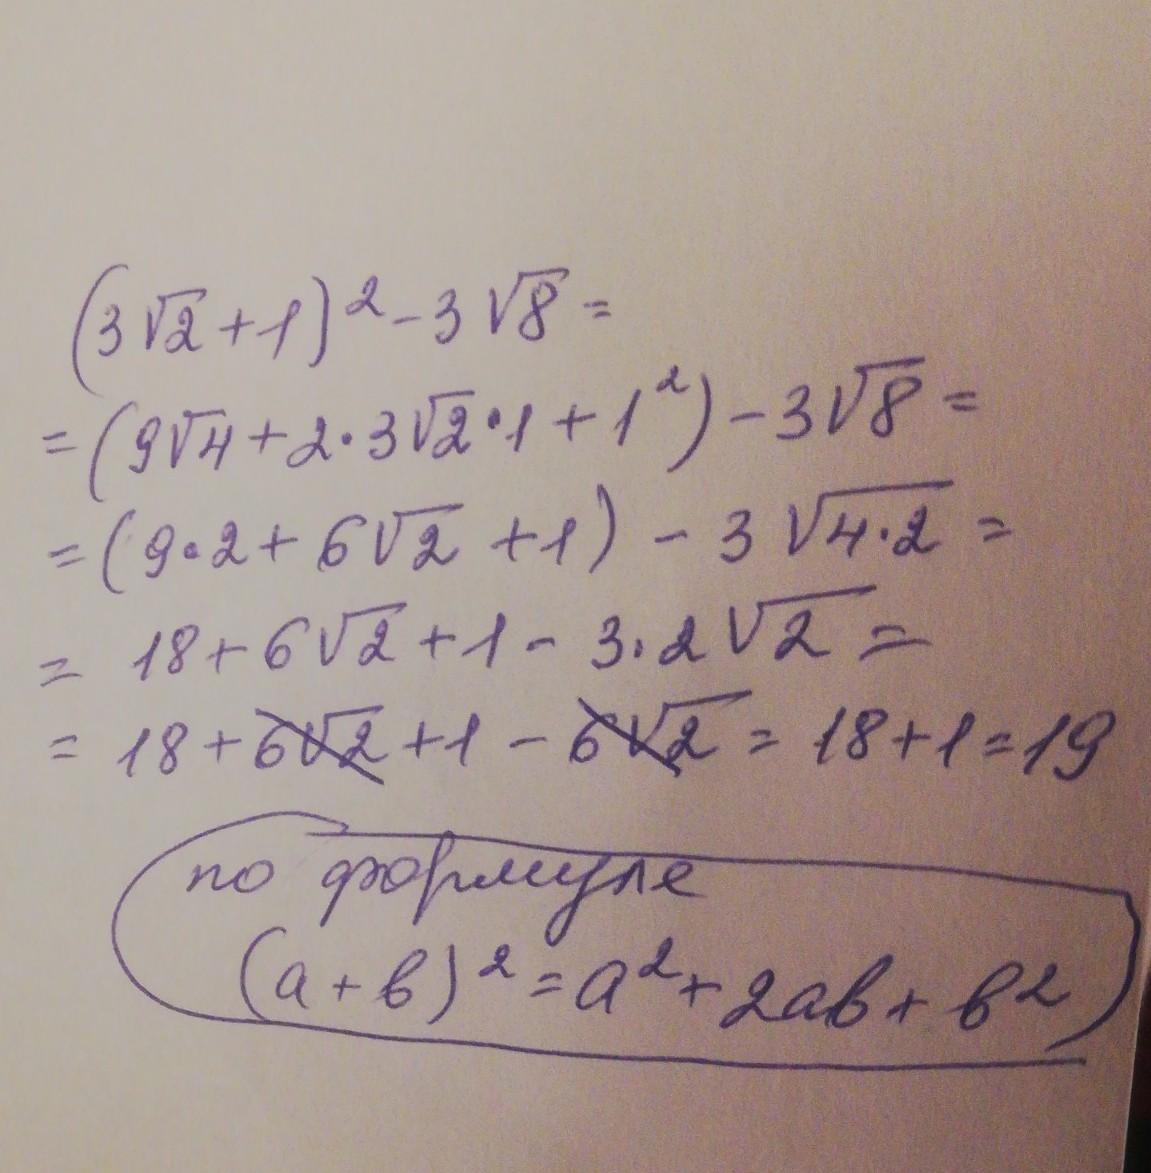 (3√2+1)²-3√8=
=(9√4+2·3√2·1+1²)-3√8=
=(9·2+6√2+1)-3√4·2=
=18+6√2+1-3·2√2=
=18+6√2+1-6√2=18+1=19
по формуле
(а+в)²=а²+2ав+в²